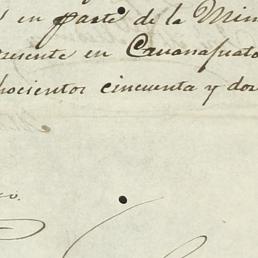 en parte de la Min
resente en Cavanafuato
hocientos cincuenta y dos